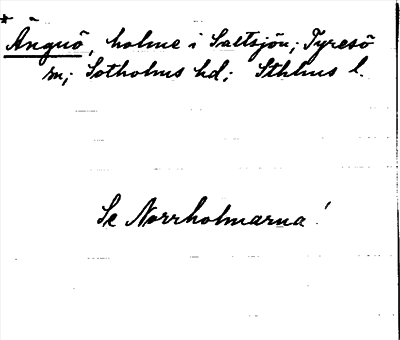 * Ängnö, holme i Saltsjön; Tyresö
sn; Sotholms hd; Sthlms l.
Se Norrholmarna!